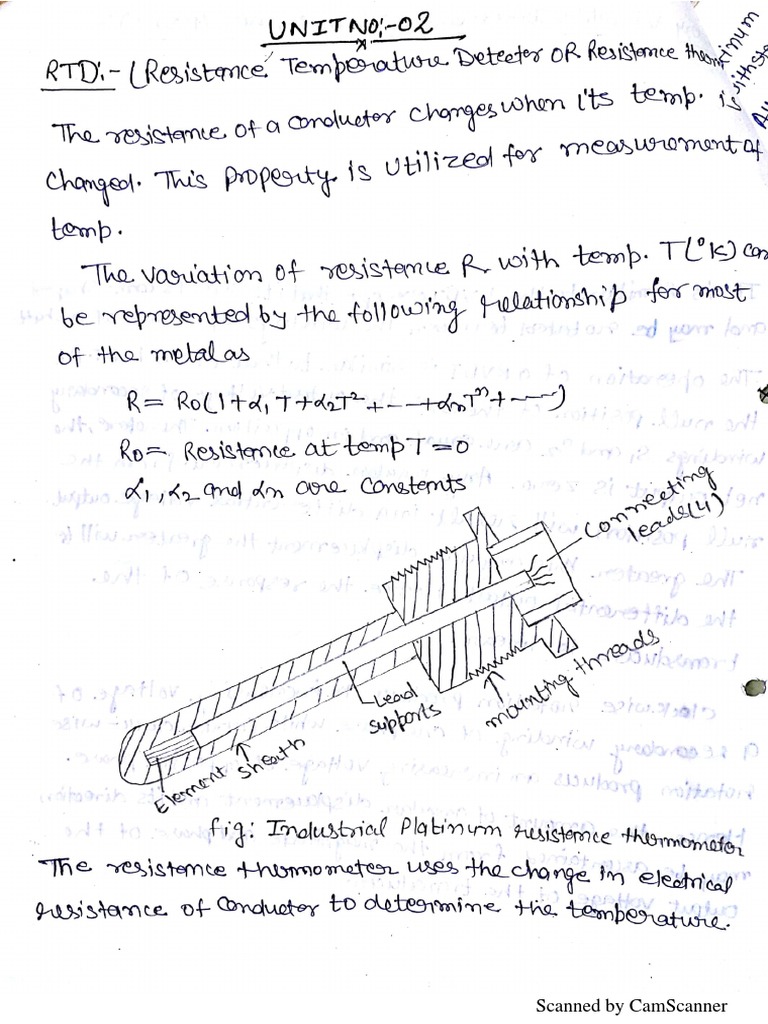 UNIT NO:-02
RTD:- (Resistance Temperature Detector OR Resistance
The resistance of a conductor changes when it's temp. is
changed. This property is utilized for measurement of
temp.
The variation of resistance R with temp. T(°K) can
be represented by the following relationship for most
of the metal as
R = R0(1+α1T+α2T²+---+αnTⁿ+----)
R0= Resistance at temp T=0
α1, α2 and αn are constants
Connecting
leads(4)
mounting threads
Lead
supports
Sheath
Element
fig: Industrial Platinum resistance thermometer
The resistance thermometer uses the change in electrical
resistance of conductor to determine the temperature.
Scanned by CamScanner